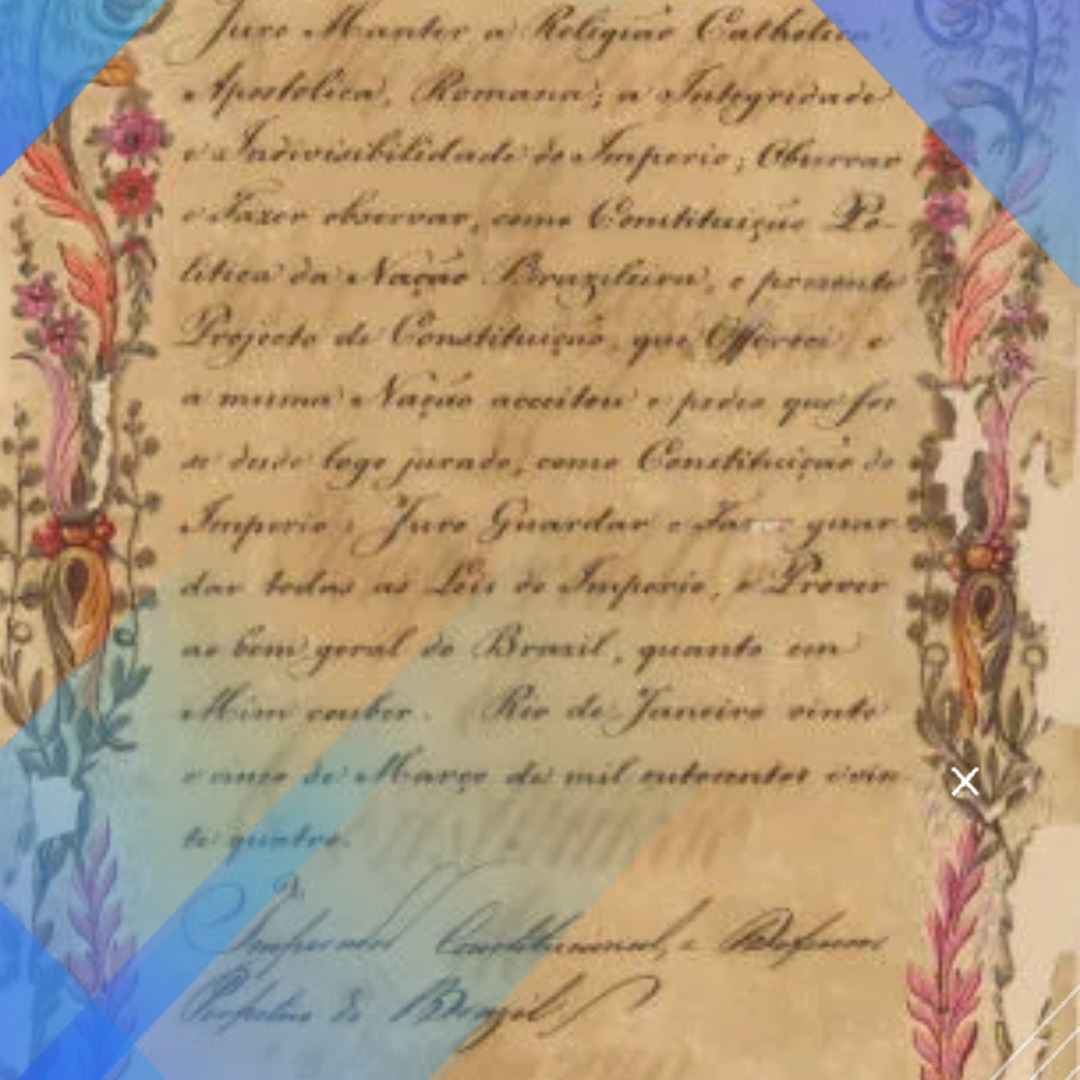 Juro Manter a Religião Catholica
Apostolica, Romana; a Integridade
e Indivisibilidade do Imperio; Observar
e Fazer observar, como Constituição Po-
litica da Nação Brazileira, o presente
Projecto de Constituição, que Offereci, e
a mesma Nação acceitou e pedio que fos
se desde logo jurado, como Constituição do
Imperio: Juro Guardar e Fazer guar
dar todas as Leis do Imperio, e Prover
ao bem geral do Brazil, quanto em
Mim couber. Rio de Janeiro vinte
e cinco de Março de mil oitocentos e vin
te quatro.
Imperador Constitucional, e Defensor
Perpetuo do Brazil